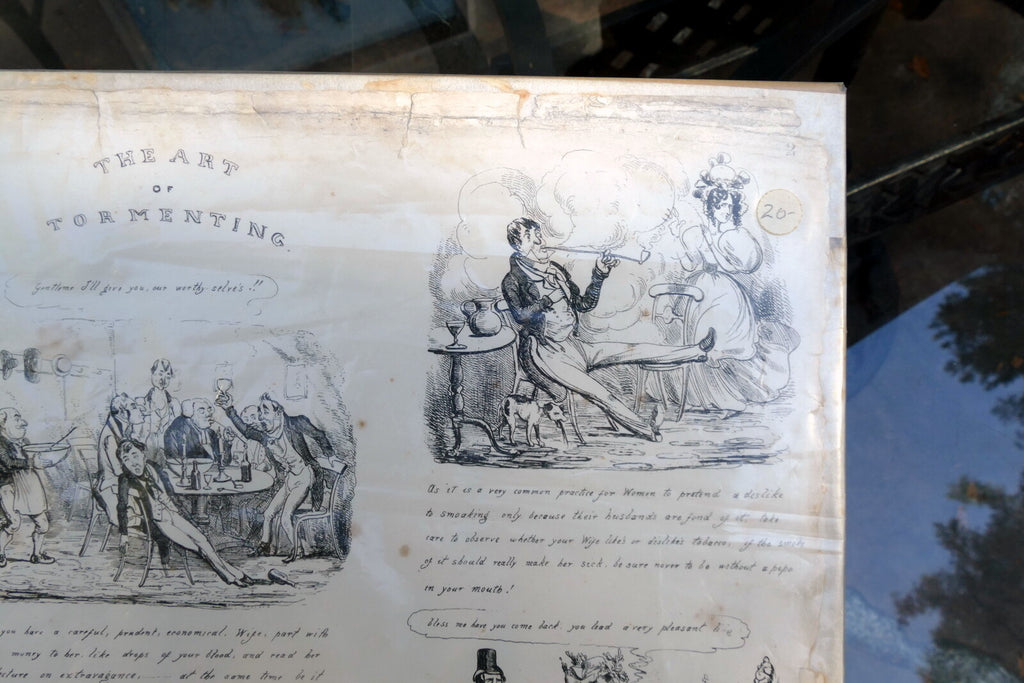 THE ART
OF
TORMENTING
2
20-
Gentlemen I'll give you, our worthy selve's !!
As it is a very common practice for Women to pretend a dislike
to smoaking only because their husbands are fond of it, take
care to observe whether your Wife likes or dislikes tobacco, if the smoke
of it should really make her sick, be sure never to be without a pipe
in your mouth!
bless me have you come back, you lead a very pleasant
you have a careful, prudent, economical, Wife, part with
money to her, like drops of your blood, and read her
lecture on extravagance, at the same time be it